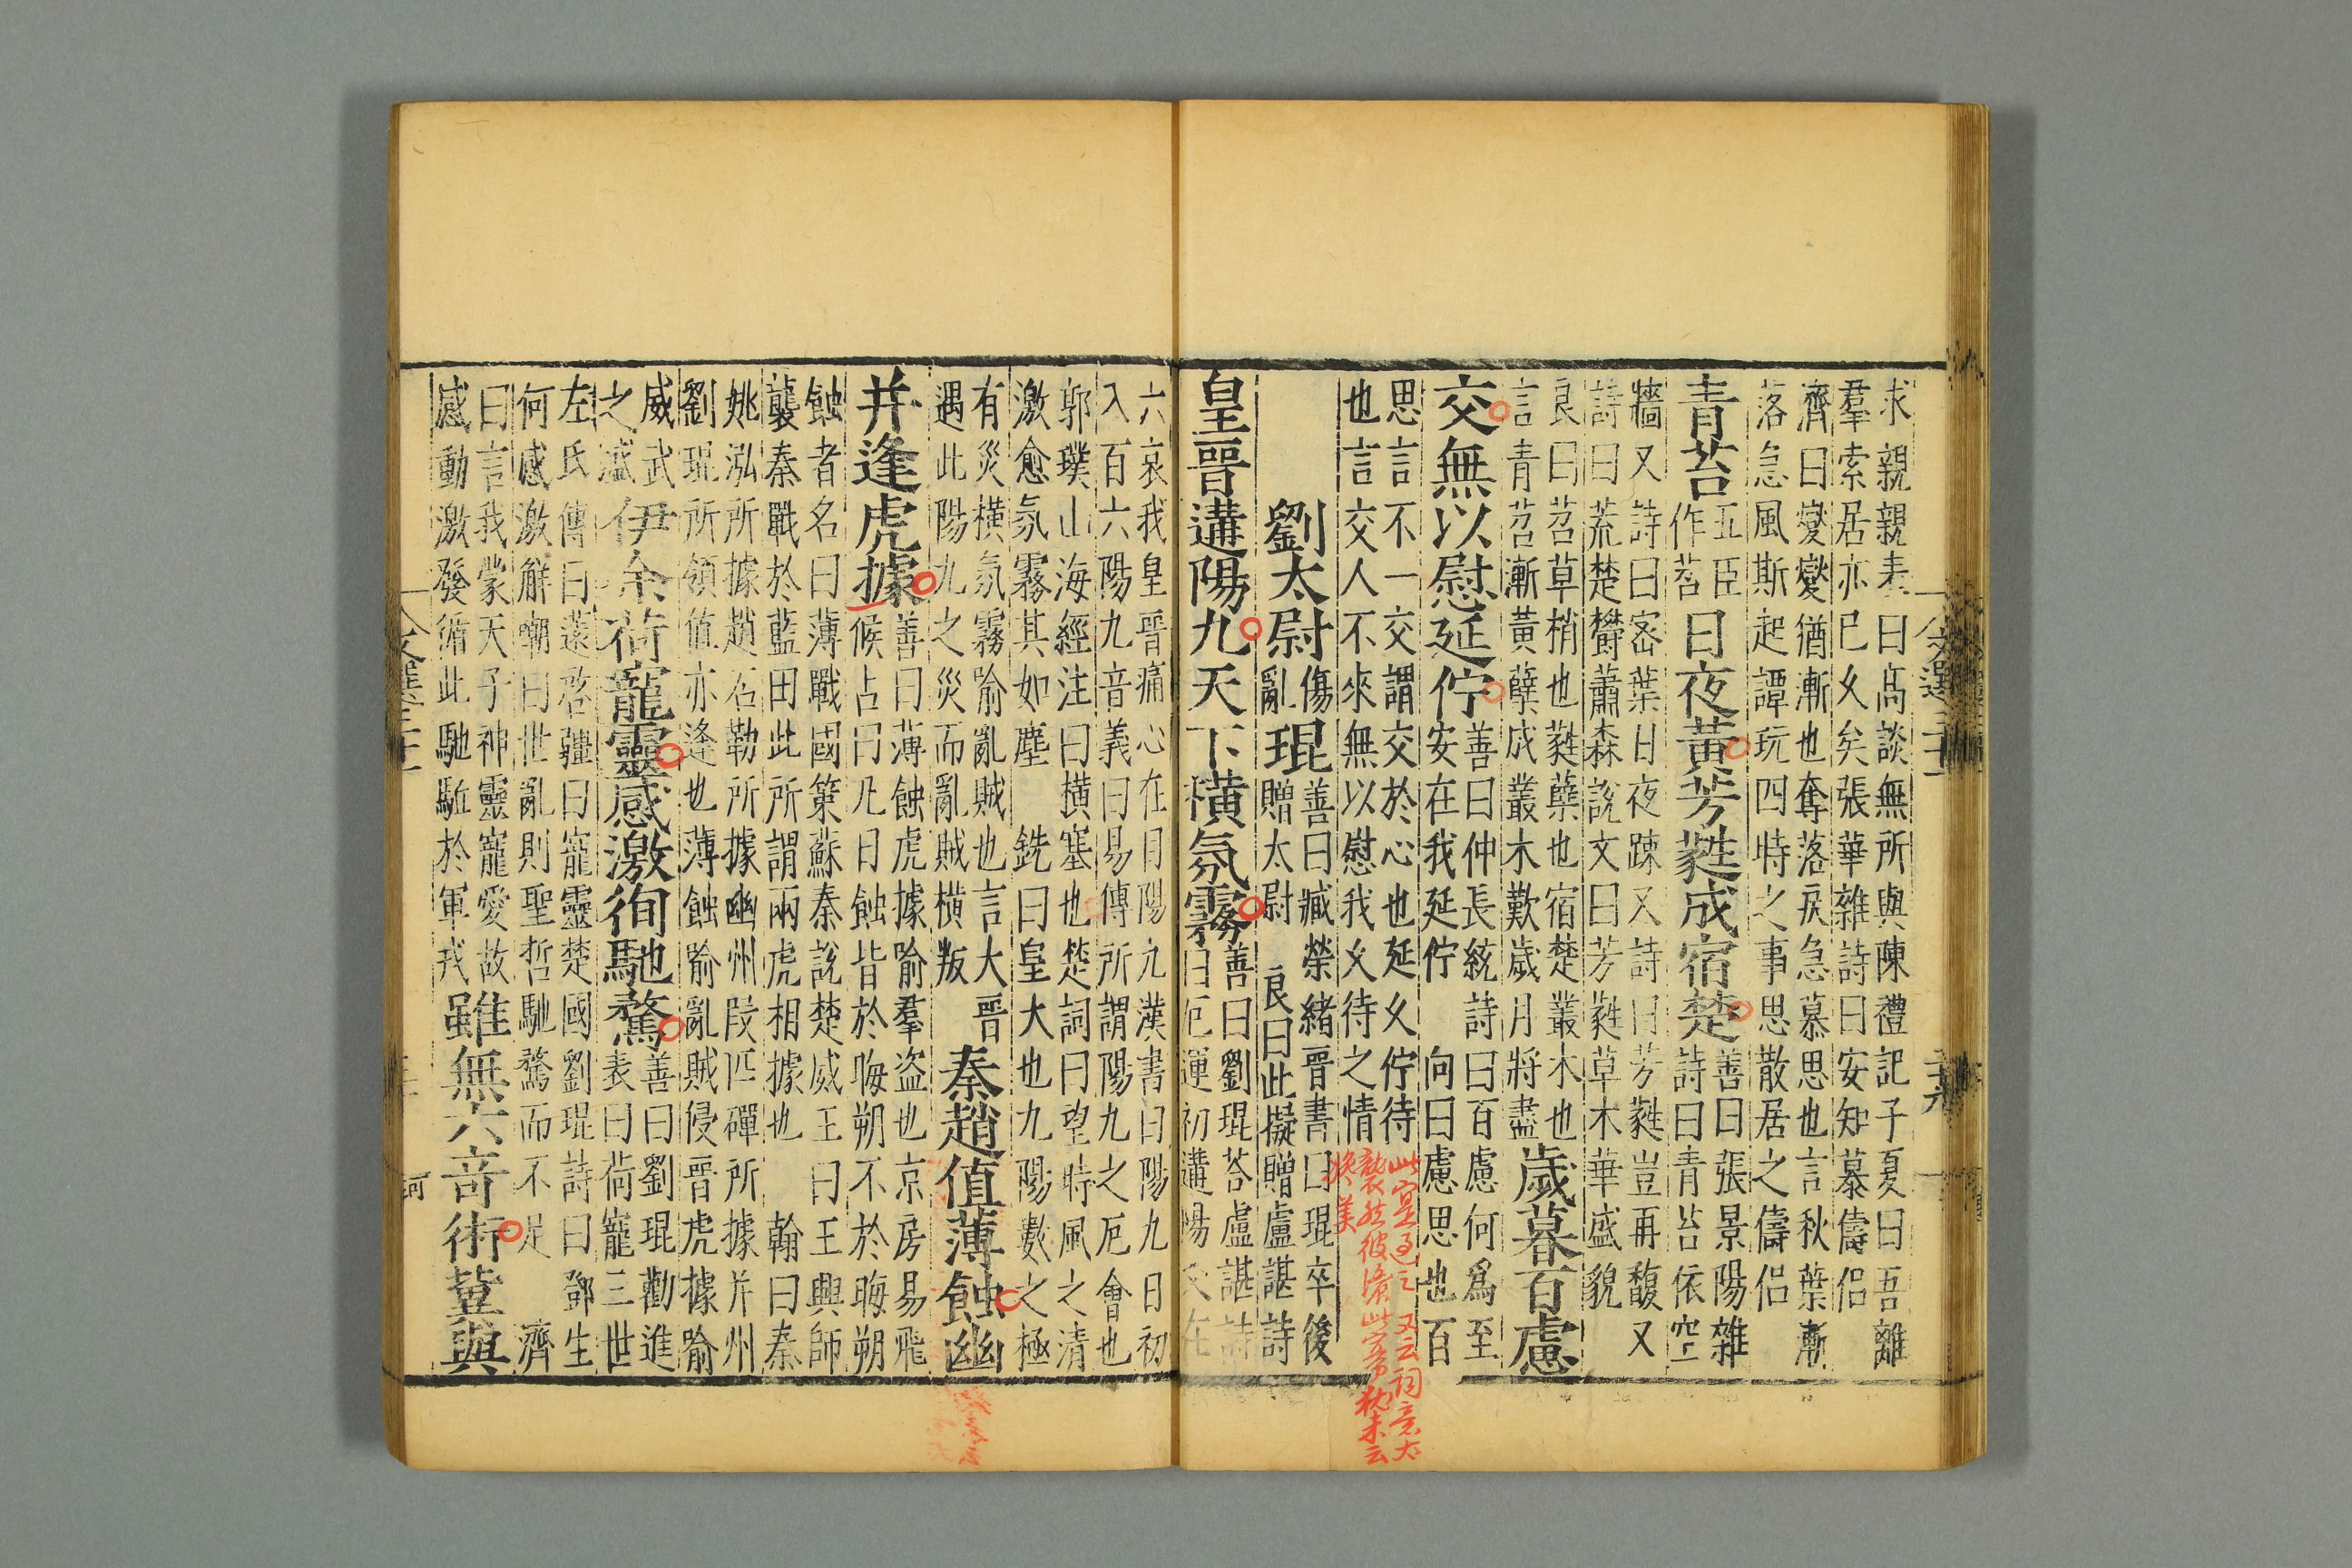 求親親表曰高談無所與陳禮記子夏曰吾離
羣索居亦已久矣張華雜詩曰安知慕儔侶
濟曰變變猶漸也奪落戾急慕思也言秋葉漸
落急風斯起譚玩四時之事思散居之儔侶
青苔五臣作苕日夜黃芳蕤成宿楚善曰張景陽雜
詩曰青苔依空
牆又詩曰密葉日夜踈又詩曰芳蕤豈再馥又
詩曰荒楚鬱蕭森說文曰芳蕤草木華盛貌
良曰苕草梢也蕤蘂也宿楚叢木也
言青苕漸黃蘖成叢木歎歲月將盡歲暮百慮
交無以慰延佇善曰仲長統詩曰百慮何爲至
安在我延佇向曰慮思也百
思言不一交謂交於心也延久佇待
也言交人不來無以慰我久待之情
劉太尉傷亂琨善曰臧榮緒晉書曰琨卒後
贈太尉良曰此擬贈盧諶詩
皇晉遘陽九天下橫氛霧善曰劉琨荅盧諶詩
曰厄運初遘陽爻在
六哀我皇晉痛心在目陽九漢書曰陽九日初
入百六陽九音義曰易傳所謂陽九之厄會也
郭璞山海經注曰橫塞也楚詞曰望時風之清
激愈氛霧其如塵銑曰皇大也九陽數之極
有災橫氛霧喻亂賊也言大晉
遇此陽九之災而亂賊橫叛秦趙值薄蝕幽
并逢虎據善曰薄蝕虎據喻羣盜也京房易飛
候占曰凡日蝕皆於晦朔不於晦朔
蝕者名曰薄戰國策蘇秦說楚威王曰王興師
襲秦戰於藍田此所謂兩虎相據也翰曰秦
姚泓所據趙石勒所據幽州段匹磾所據并州
劉琨所領值亦逢也薄蝕喻亂賊侵晉虎據喻
威武
之盛伊余荷寵靈感激徇馳騖善曰劉琨勸進
表曰荷寵三世
左氏傳曰薳啓疆曰寵靈楚國劉琨詩曰鄧生
何感激解嘲曰世亂則聖哲馳騖而不足濟
曰言我蒙天子神靈寵愛故
感動激發循此馳駈於軍戎雖無六竒術冀與
此宜過之又云詞意太
襲然彼濟此字亦執未云